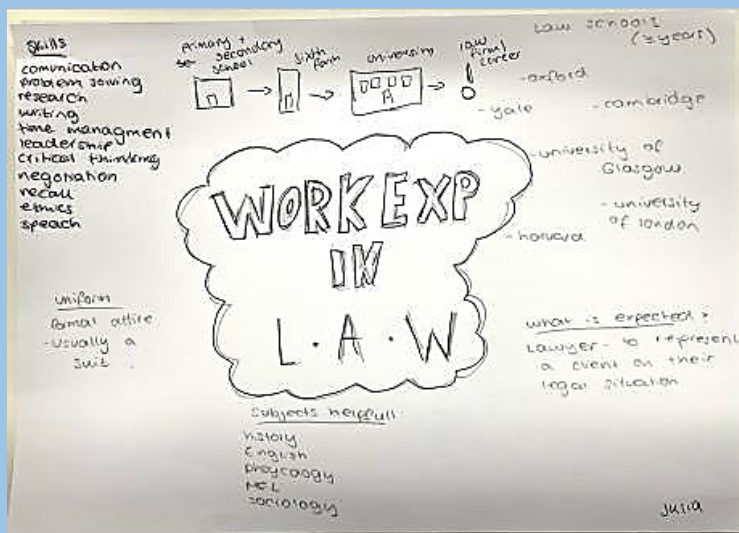 skills
comunication
problem solving
research
writing
time managment
leadership
critical thinking
negotiation
recall
ethics
speach
primary +
secondary
school
sixth
form
university
law
firm/
career
Law schools
(3 years)
-oxford
-yale
-cambridge
-university of
Glasgow
-university
of london
-harvard
WORK EXP
IN
L.A.W
uniform
formal attire
-usually a
suit.
what is expected?
Lawyer- to represent
a client on their
legal situation
Subjects helpfull
history
English
sociology